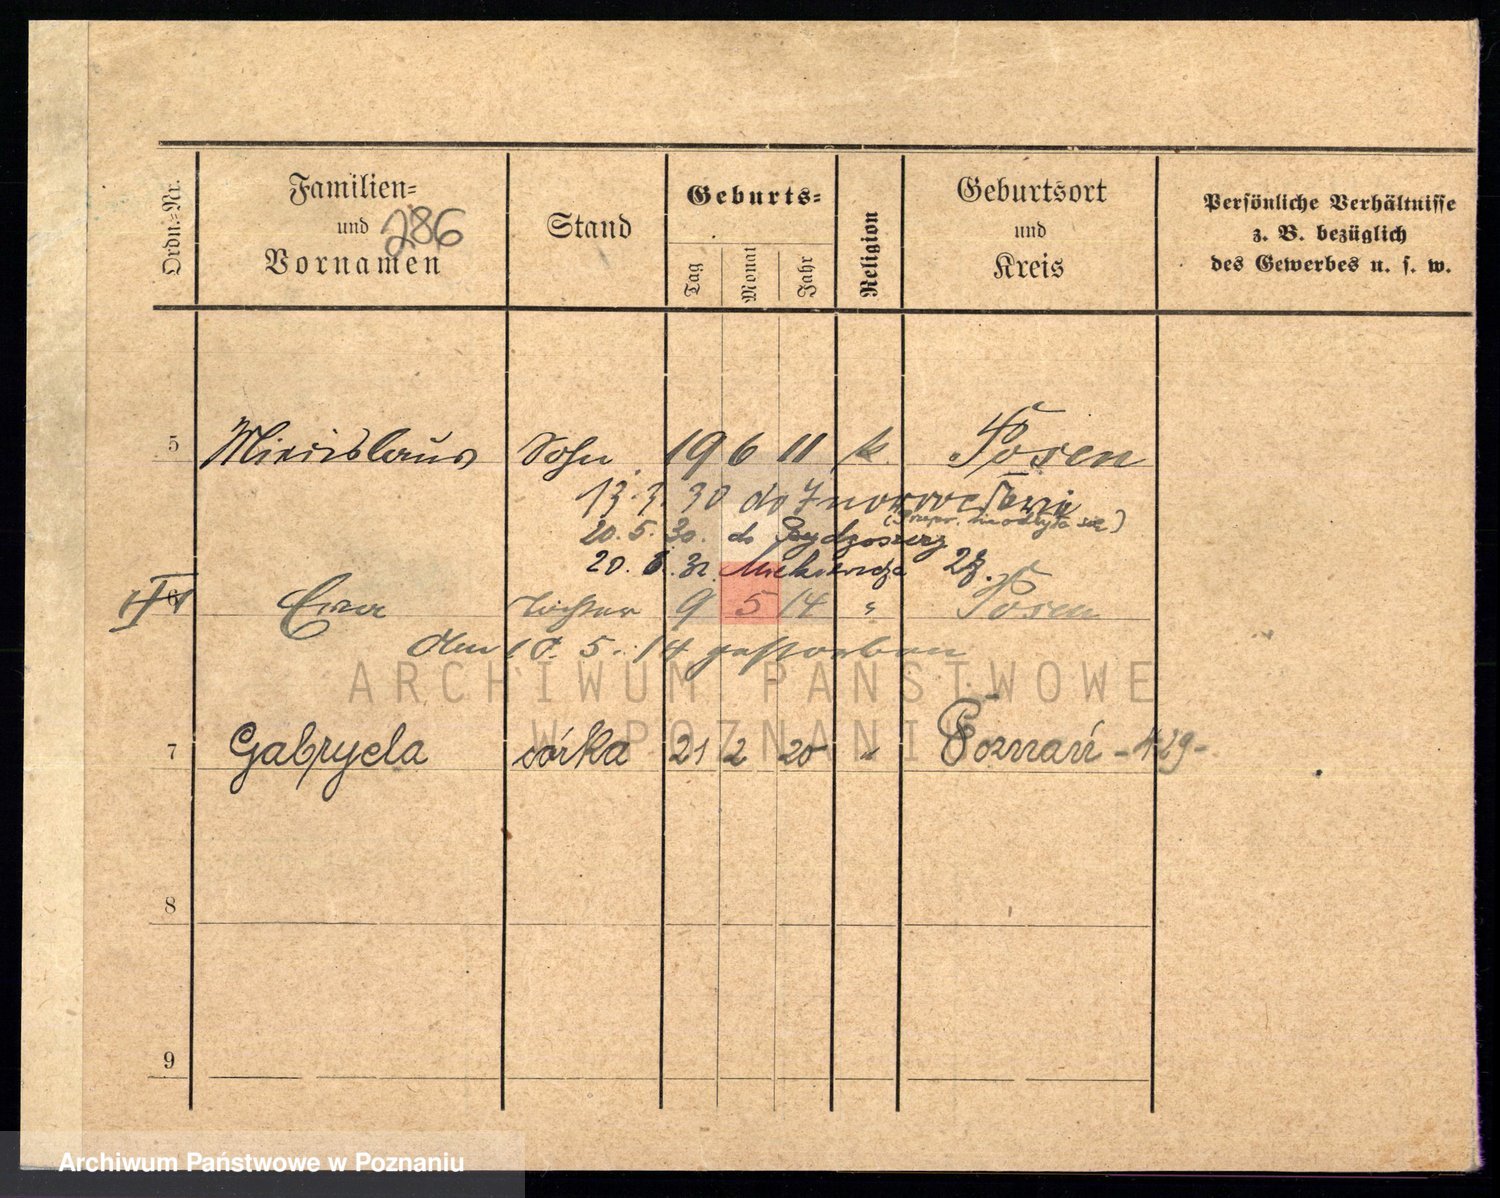 Ordn.=Nr.
Familien=
und
Vornamen
286
Stand
Geburts=
Tag
Monat
Jahr
Religion
Geburtsort
und
Kreis
Persönliche Verhältnisse
z. B. bezüglich
des Gewerbes u. s. w.
5 Sohn 19 6 11 k. Posen
13. 3. 30 do
(Przepr. nie odbyła się)
20. 5. 30. do Bydgoszczy
20. 31.
6 Ewa Tochter 9 5 14 " Posen
den 10. 5. 14 gestorben
7 Gabryela córka 21 2 20 " Poznań
8
9
ARCHIWUM PAŃSTWOWE
W POZNANIU
Archiwum Państwowe w Poznaniu